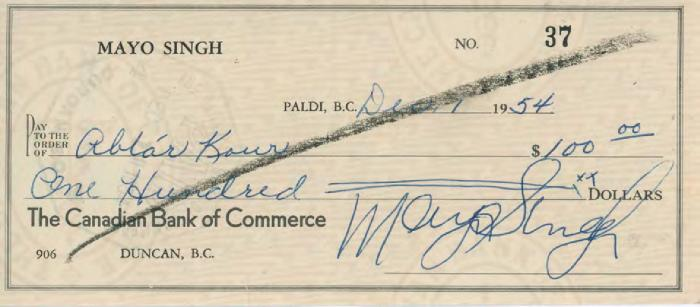 MAYO SINGH NO. 37
PALDI, B.C. Dec 1 1954
PAY TO THE ORDER OF Abtár Kour $ 100 00
One Hundred xx DOLLARS
The Canadian Bank of Commerce
906 DUNCAN, B.C.
Mayo Singh